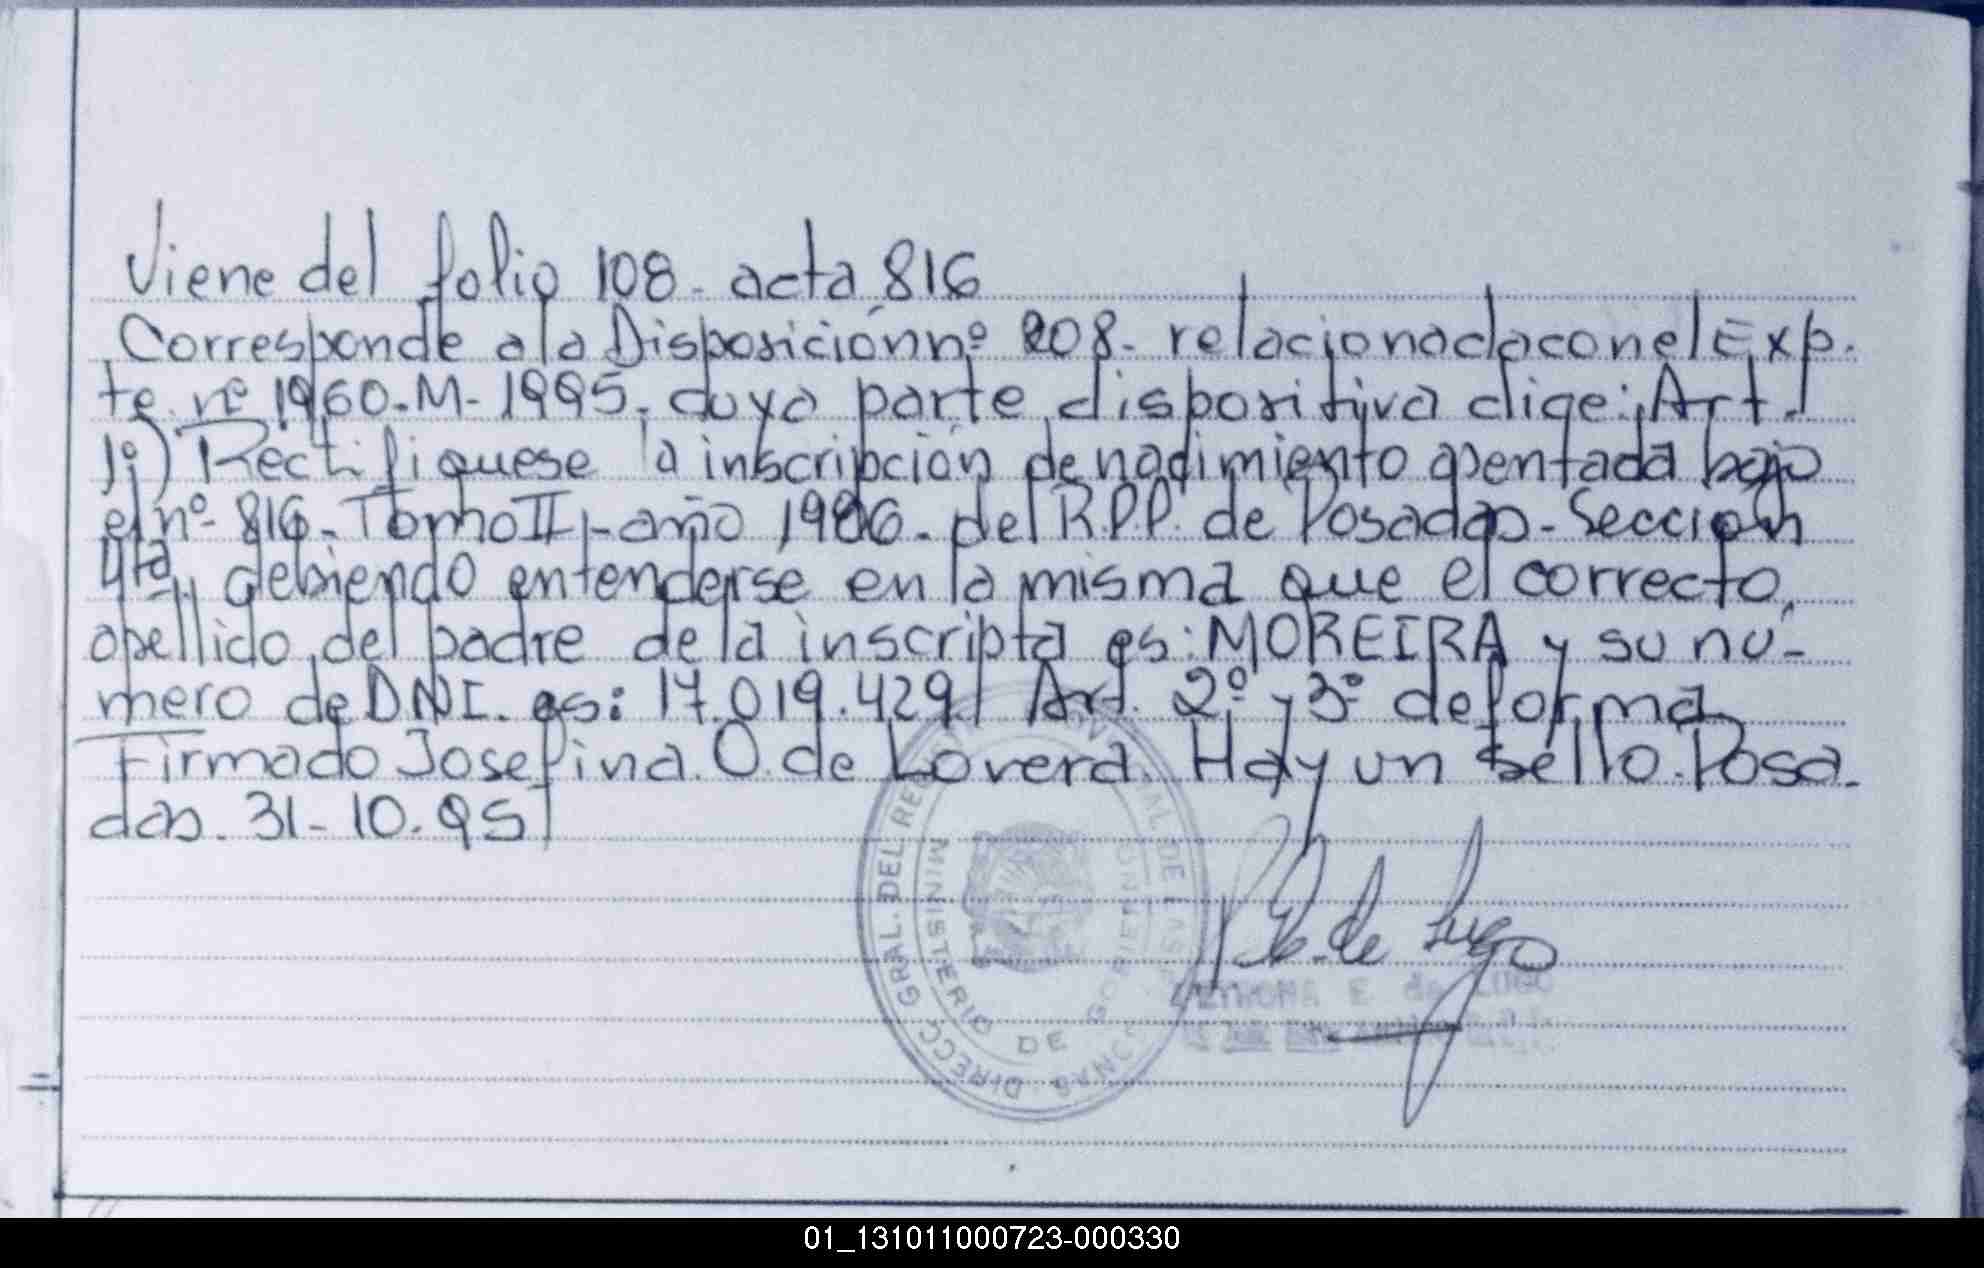 Viene del folio 108- acta 816
Corresponde a la Disposición nº 208- relacionada con el Exp-
te. nº 1960-M-1995, cuya parte dispositiva dice: Art.
1º) Rectifiquese la inscripción de nacimiento asentada bajo
el nº 816- Tomo II - año 1986- del R.P.P. de Posadas- Sección
4ta. debiendo entenderse en la misma que el correcto,
apellido del padre de la inscripta es: MOREIRA y su nú-
mero de DNI. es: 17.019.429. Art. 2º y 3º de forma
Firmado Josefina O. de Lovera. Hay un sello. Posa-
das. 31-10-95
DIRECC. GRAL. DEL
MINISTERIO DE GOBIERNO
de Lugo
PETRONA E. de LUGO
01_131011000723-000330